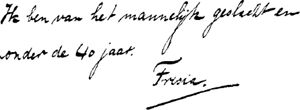 Ik ben van het mannelijk geslacht en
onder de 40 jaar.
Frisia.